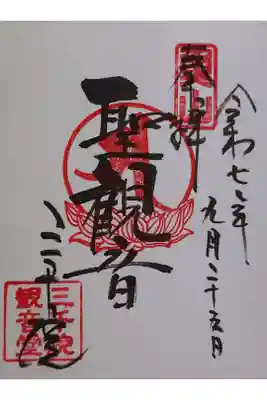 令和七年九月二十五日
魚山
奉拝
聖観音
三千院
三千院
観音堂